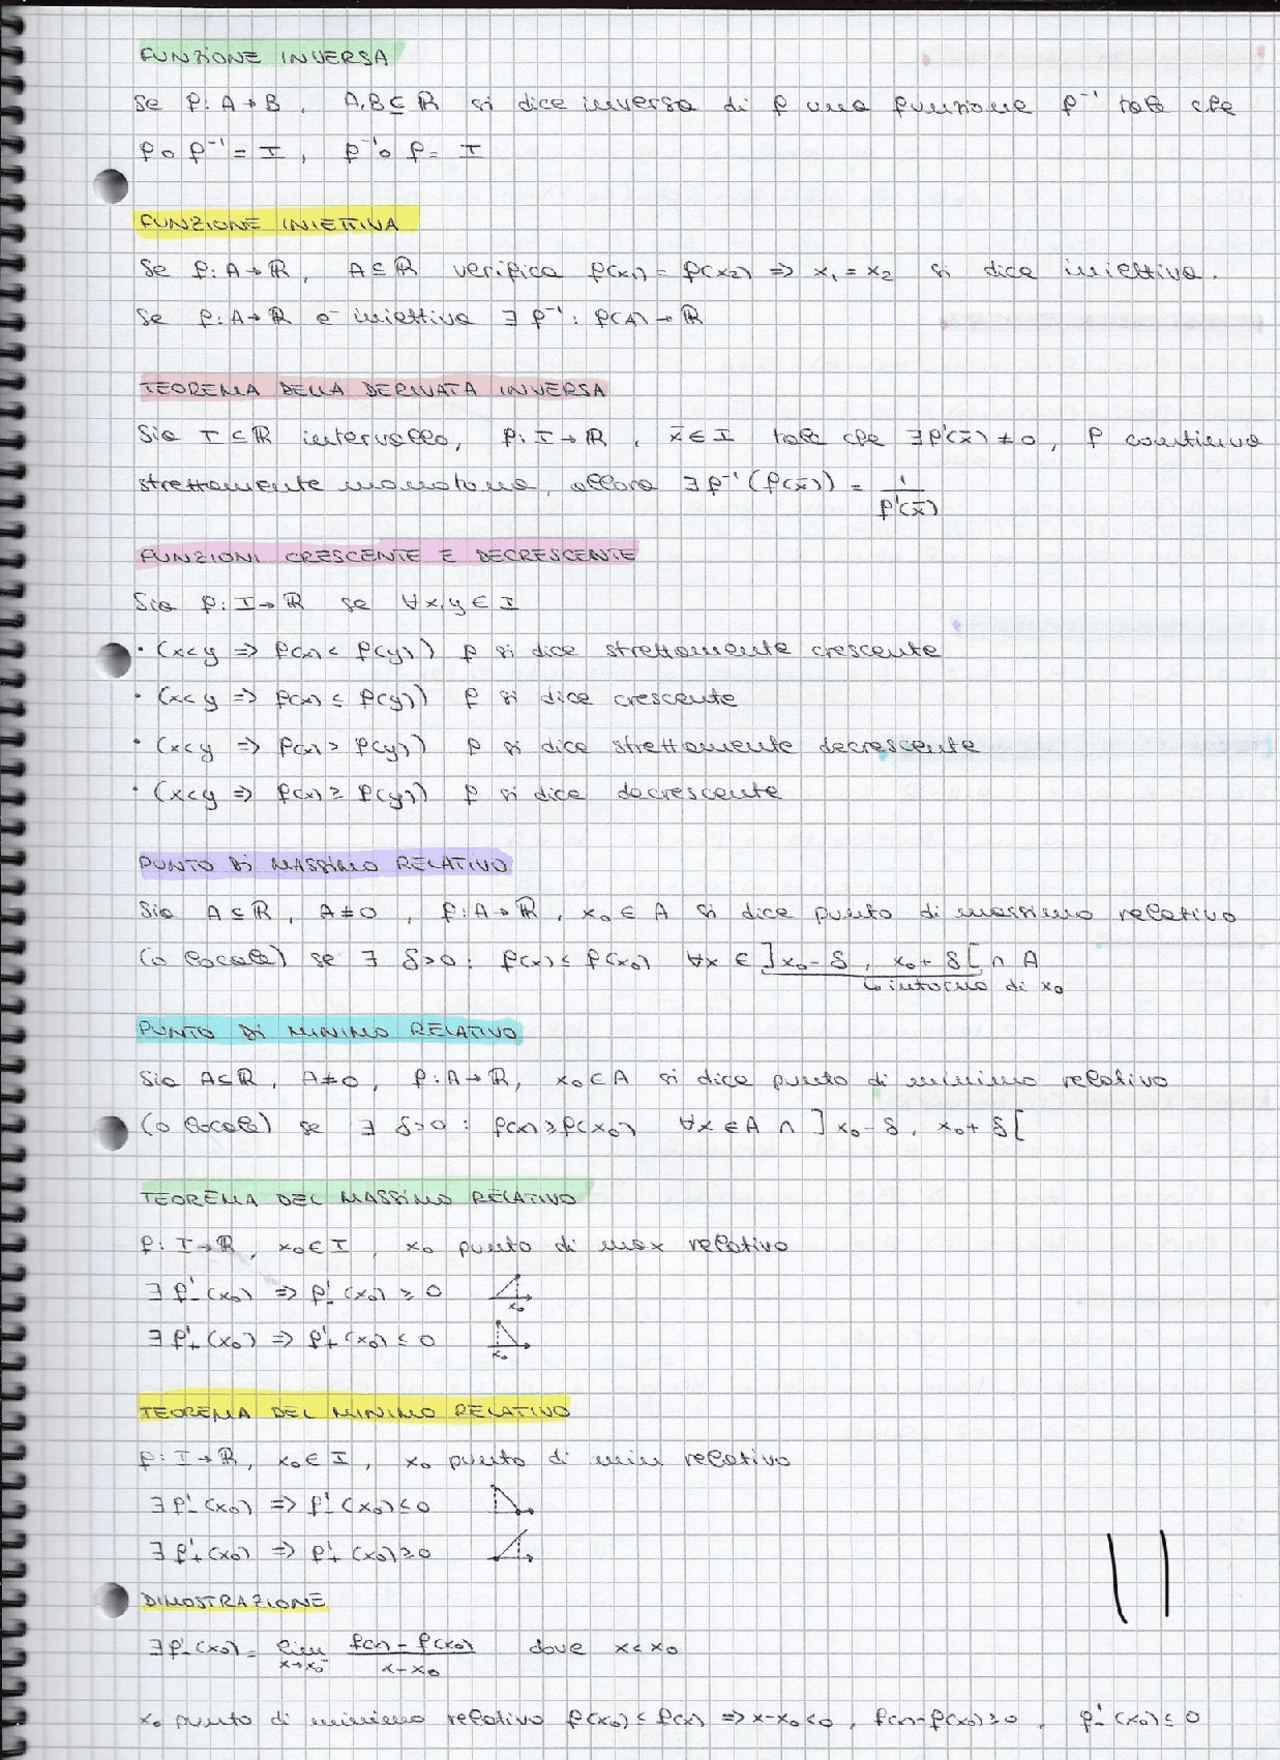 FUNZIONE INVERSA
Se f: A→B, A,B⊆ℝ si dice inversa di f una funzione f⁻¹ tale che
f∘f⁻¹ = I, f⁻¹∘f = I
FUNZIONE INIETTIVA
Se f: A→ℝ, A⊆ℝ verifica f(x₁) = f(x₂) => x₁ = x₂ si dice iniettiva.
Se f: A→ℝ è iniettiva ∃ f⁻¹: f(A)→ℝ
TEOREMA DELLA DERIVATA INVERSA
Sia I⊆ℝ intervallo, f: I→ℝ, x̄∈I tale che ∃f'(x̄) ≠ 0, f continua
strettamente monotona, allora ∃ f⁻¹(f(x̄)) = 1/f'(x̄)
FUNZIONI CRESCENTE E DECRESCENTE
Sia f: I→ℝ se ∀x,y ∈ I
• (x<y => f(x) < f(y)) f si dice strettamente crescente
• (x<y => f(x) ≤ f(y)) f si dice crescente
• (x<y => f(x) > f(y)) f si dice strettamente decrescente
• (x<y => f(x) ≥ f(y)) f si dice decrescente
PUNTO DI MASSIMO RELATIVO
Sia A⊆ℝ, A≠0, f: A→ℝ, x₀∈A si dice punto di massimo relativo
(o locale) se ∃ δ>0: f(x) ≤ f(x₀) ∀x ∈ ]x₀-δ, x₀+δ[ ∩ A
↳ intorno di x₀
PUNTO DI MINIMO RELATIVO
Sia A⊆ℝ, A≠0, f: A→ℝ, x₀∈A si dice punto di minimo relativo
(o locale) se ∃ δ>0: f(x) ≥ f(x₀) ∀x ∈ A ∩ ]x₀-δ, x₀+δ[
TEOREMA DEL MASSIMO RELATIVO
f: I→ℝ, x₀∈I, x₀ punto di max relativo
∃ f'₋(x₀) => f'₋(x₀) ≥ 0 x₀
∃ f'₊(x₀) => f'₊(x₀) ≤ 0 x₀
TEOREMA DEL MINIMO RELATIVO
f: I→ℝ, x₀∈I, x₀ punto di min relativo
∃ f'₋(x₀) => f'₋(x₀) ≤ 0
∃ f'₊(x₀) => f'₊(x₀) ≥ 0
11
DIMOSTRAZIONE
∃ f'₋(x₀) = lim x→x₀⁻ (f(x) - f(x₀))/(x - x₀) dove x < x₀
x₀ punto di minimo relativo f(x₀) ≤ f(x) => x-x₀<0, f(x)-f(x₀) ≥ 0, f'₋(x₀) ≤ 0